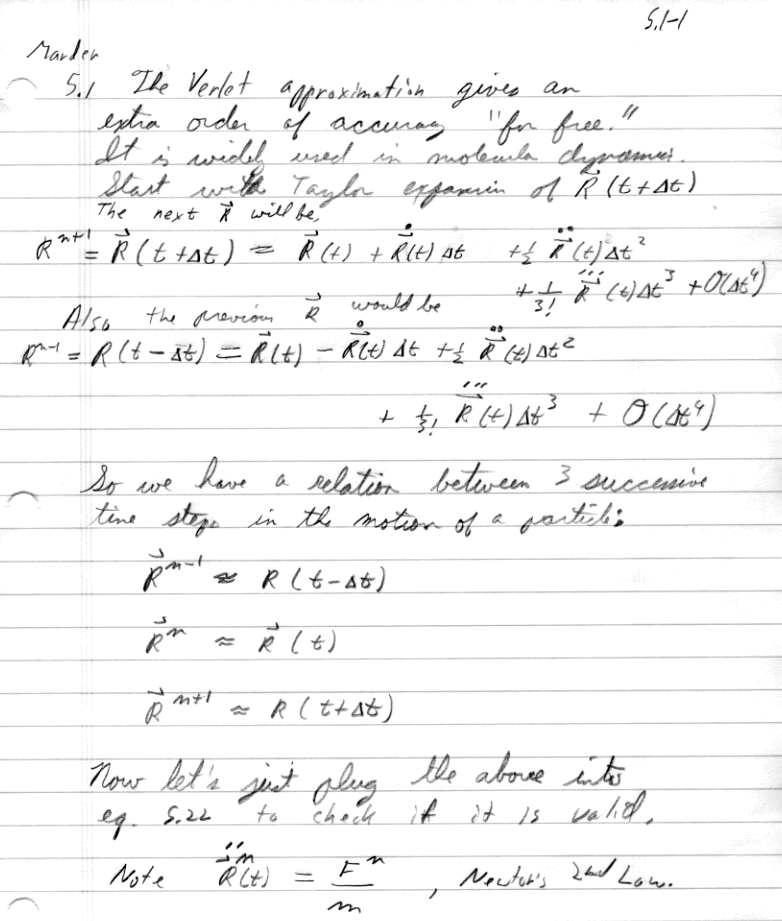 5.1-1
Marder
5.1 The Verlet approximation gives an
extra order of accuracy "for free."
It is widely used in molecular dynamics.
Start with Taylor expansion of R⃗(t+Δt)
The next R⃗ will be,
R^{n+1} = R⃗(t+Δt) = R⃗(t) + R⃗̇(t)Δt + ½ R⃗̈(t)Δt²
+ 1/3! R⃗⃛(t)Δt³ + O(Δt⁴)
Also the previous R⃗ would be
R^{n-1} = R(t-Δt) = R⃗(t) - R⃗̇(t)Δt + ½ R⃗̈(t)Δt²
+ 1/3! R⃗⃛(t)Δt³ + O(Δt⁴)
So we have a relation between 3 successive
time steps in the motion of a particle:
R⃗^{n-1} ≈ R(t-Δt)
R⃗^n ≈ R⃗(t)
R⃗^{n+1} ≈ R(t+Δt)
Now let's just plug the above into
eq. 5.22 to check if it is valid.
Note R⃗̈^n(t) = F^n/m, Newton's 2nd Law.